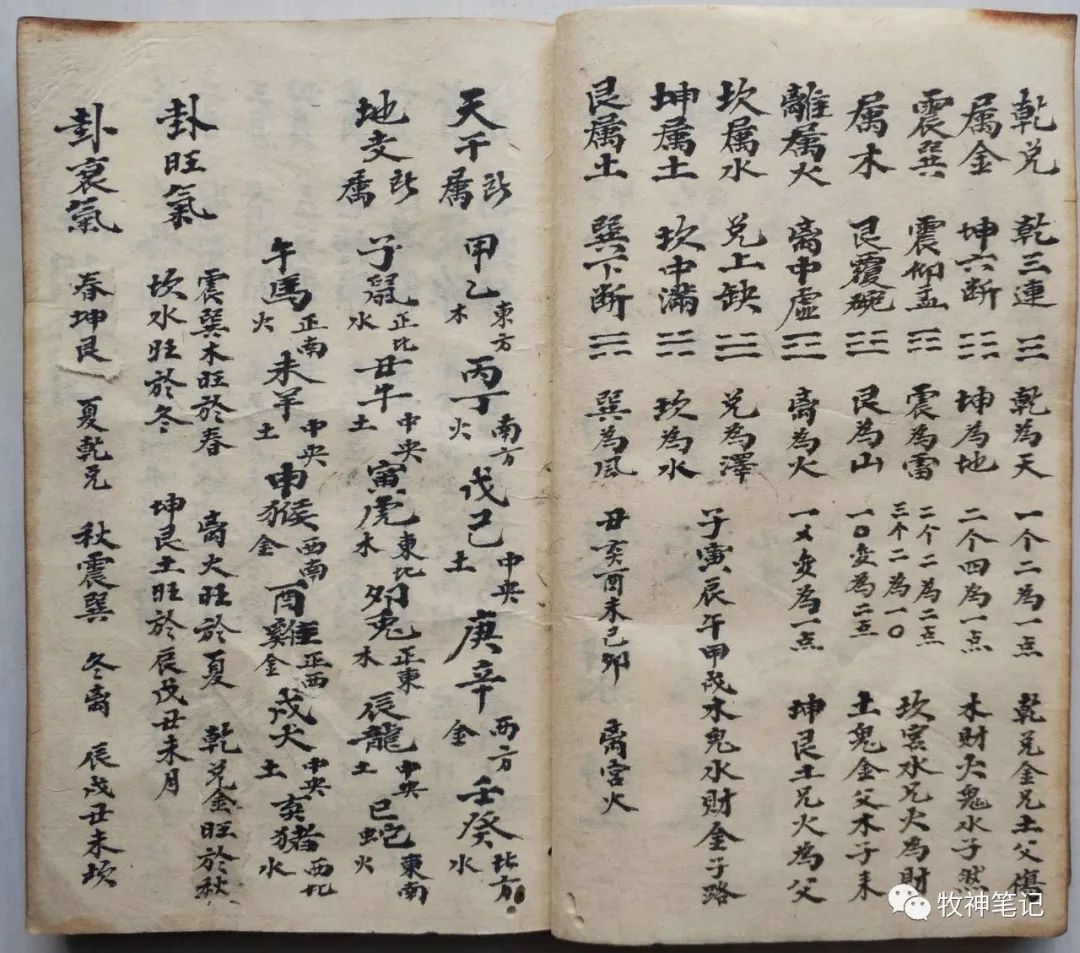 乾兑 乾三連 乾為天 一个二為一点 乾兑金兄土父傷
属金 坤六断 坤為地 二个四為一点 木財火鬼水子然
震巽 震仰盂 震為雷 二个二為二点 三个二為一〇 坎宫水兄火為財
属木 艮覆碗 艮為山 一〇為二点 土鬼金父木子来
離属火 离中虚 离為火 一為一点 坤艮土兄火為父
坎属水 兑上缺 兑為澤 子寅辰午甲戌木鬼水財金子路
坤属土 坎中満 坎為水
艮属土 巽下断 巽為风 丑亥酉未已卯 离宫火
天干所属 甲乙東方木 丙丁南方火 戊己中央土 庚辛西方金 壬癸北方水
地支所属 子鼠正北水 丑牛中央土 寅虎東北木 卯兎正東木 辰龍中央土 巳蛇東南火
午馬正南火 未羊中央土 申猴西南金 酉雞正西金 戌犬中央土 亥猪西北水
卦旺氣 震巽木旺於春 离火旺於夏 乾兑金旺於秋
坎水旺於冬 坤艮土旺於辰戌丑未月
卦衰氣 春坤艮 夏乾兑 秋震巽 冬离 辰戌丑未坎
牧神笔记